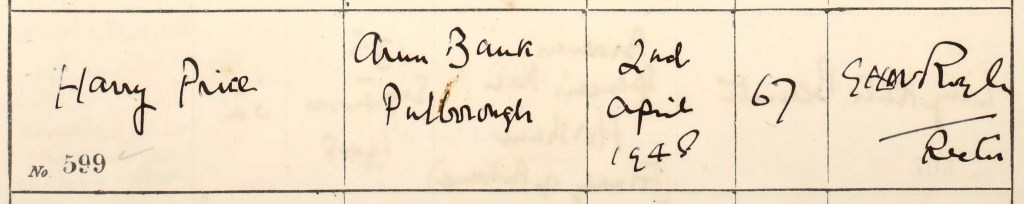 Harry Price
No. 599
Arun Bank
Pulborough
2nd
April
1948
67
Rector